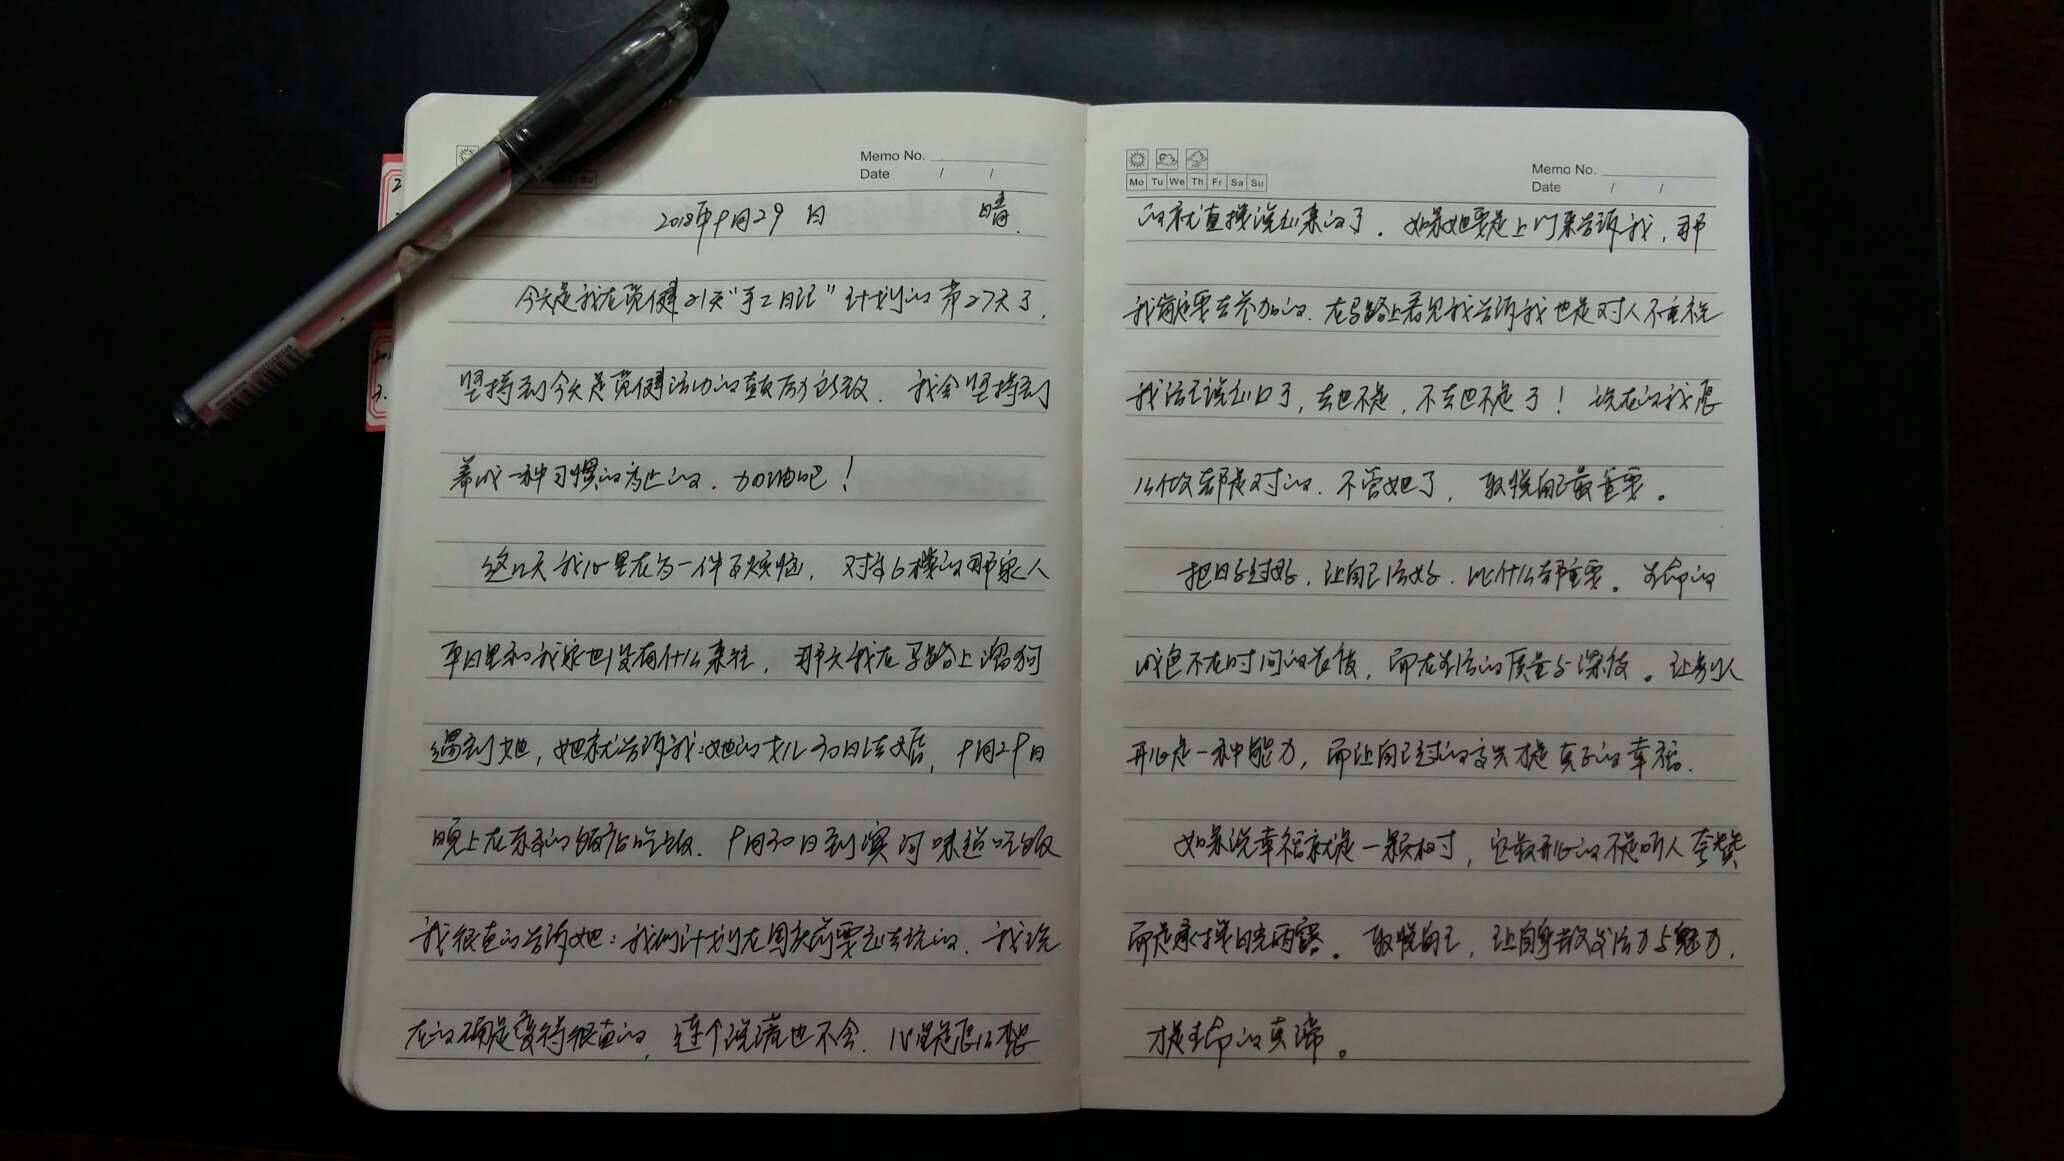 Memo No.
Date / /
2018年9月29日 晴.
今天是我在 21天“手工日记”计划的第27天了.
坚持到今天是 活动的鼓励 . 我会坚持到
养成一种习惯的为止的. 加油吧!
这几天我心里在为一件事烦恼, 对 6楼的那家人
平日里和我家也没有什么来往, 那天我在马路上溜狗
遇到她, 她就告诉我:她的女儿30日结婚, 9月29日
晚上在 的饭店吃饭. 9月30日到 味道吃饭
我很直的告诉她:我们计划在国庆前要出去玩的. 我现
在的确是变得很直的, 连个说谎也不会. 心里是怎么想
Mo Tu We Th Fr Sa Su
Memo No.
Date / /
的就直接说出来的了. 如果她要是上门来告诉我, 那
我肯定要去参加的. 在马路上看见我告诉我也是对人不重视
我话已说出口了, 去也不是, 不去也不是了! 现在的我怎
么做都是对的. 不管她了, 取悦自己最重要。
把日子过好, 让自己活好. 比什么都重要。生命的
成色不在时间的长短, 而在生活的质量与深度。让别人
开心是一种能力, 而让自己过的 才是真正的幸福.
如果说幸福就是一颗树, 它最开心的不是听人夸赞
而是 阳光雨露。取悦自己, 让自身散发活力与魅力,
才是生命的真谛。